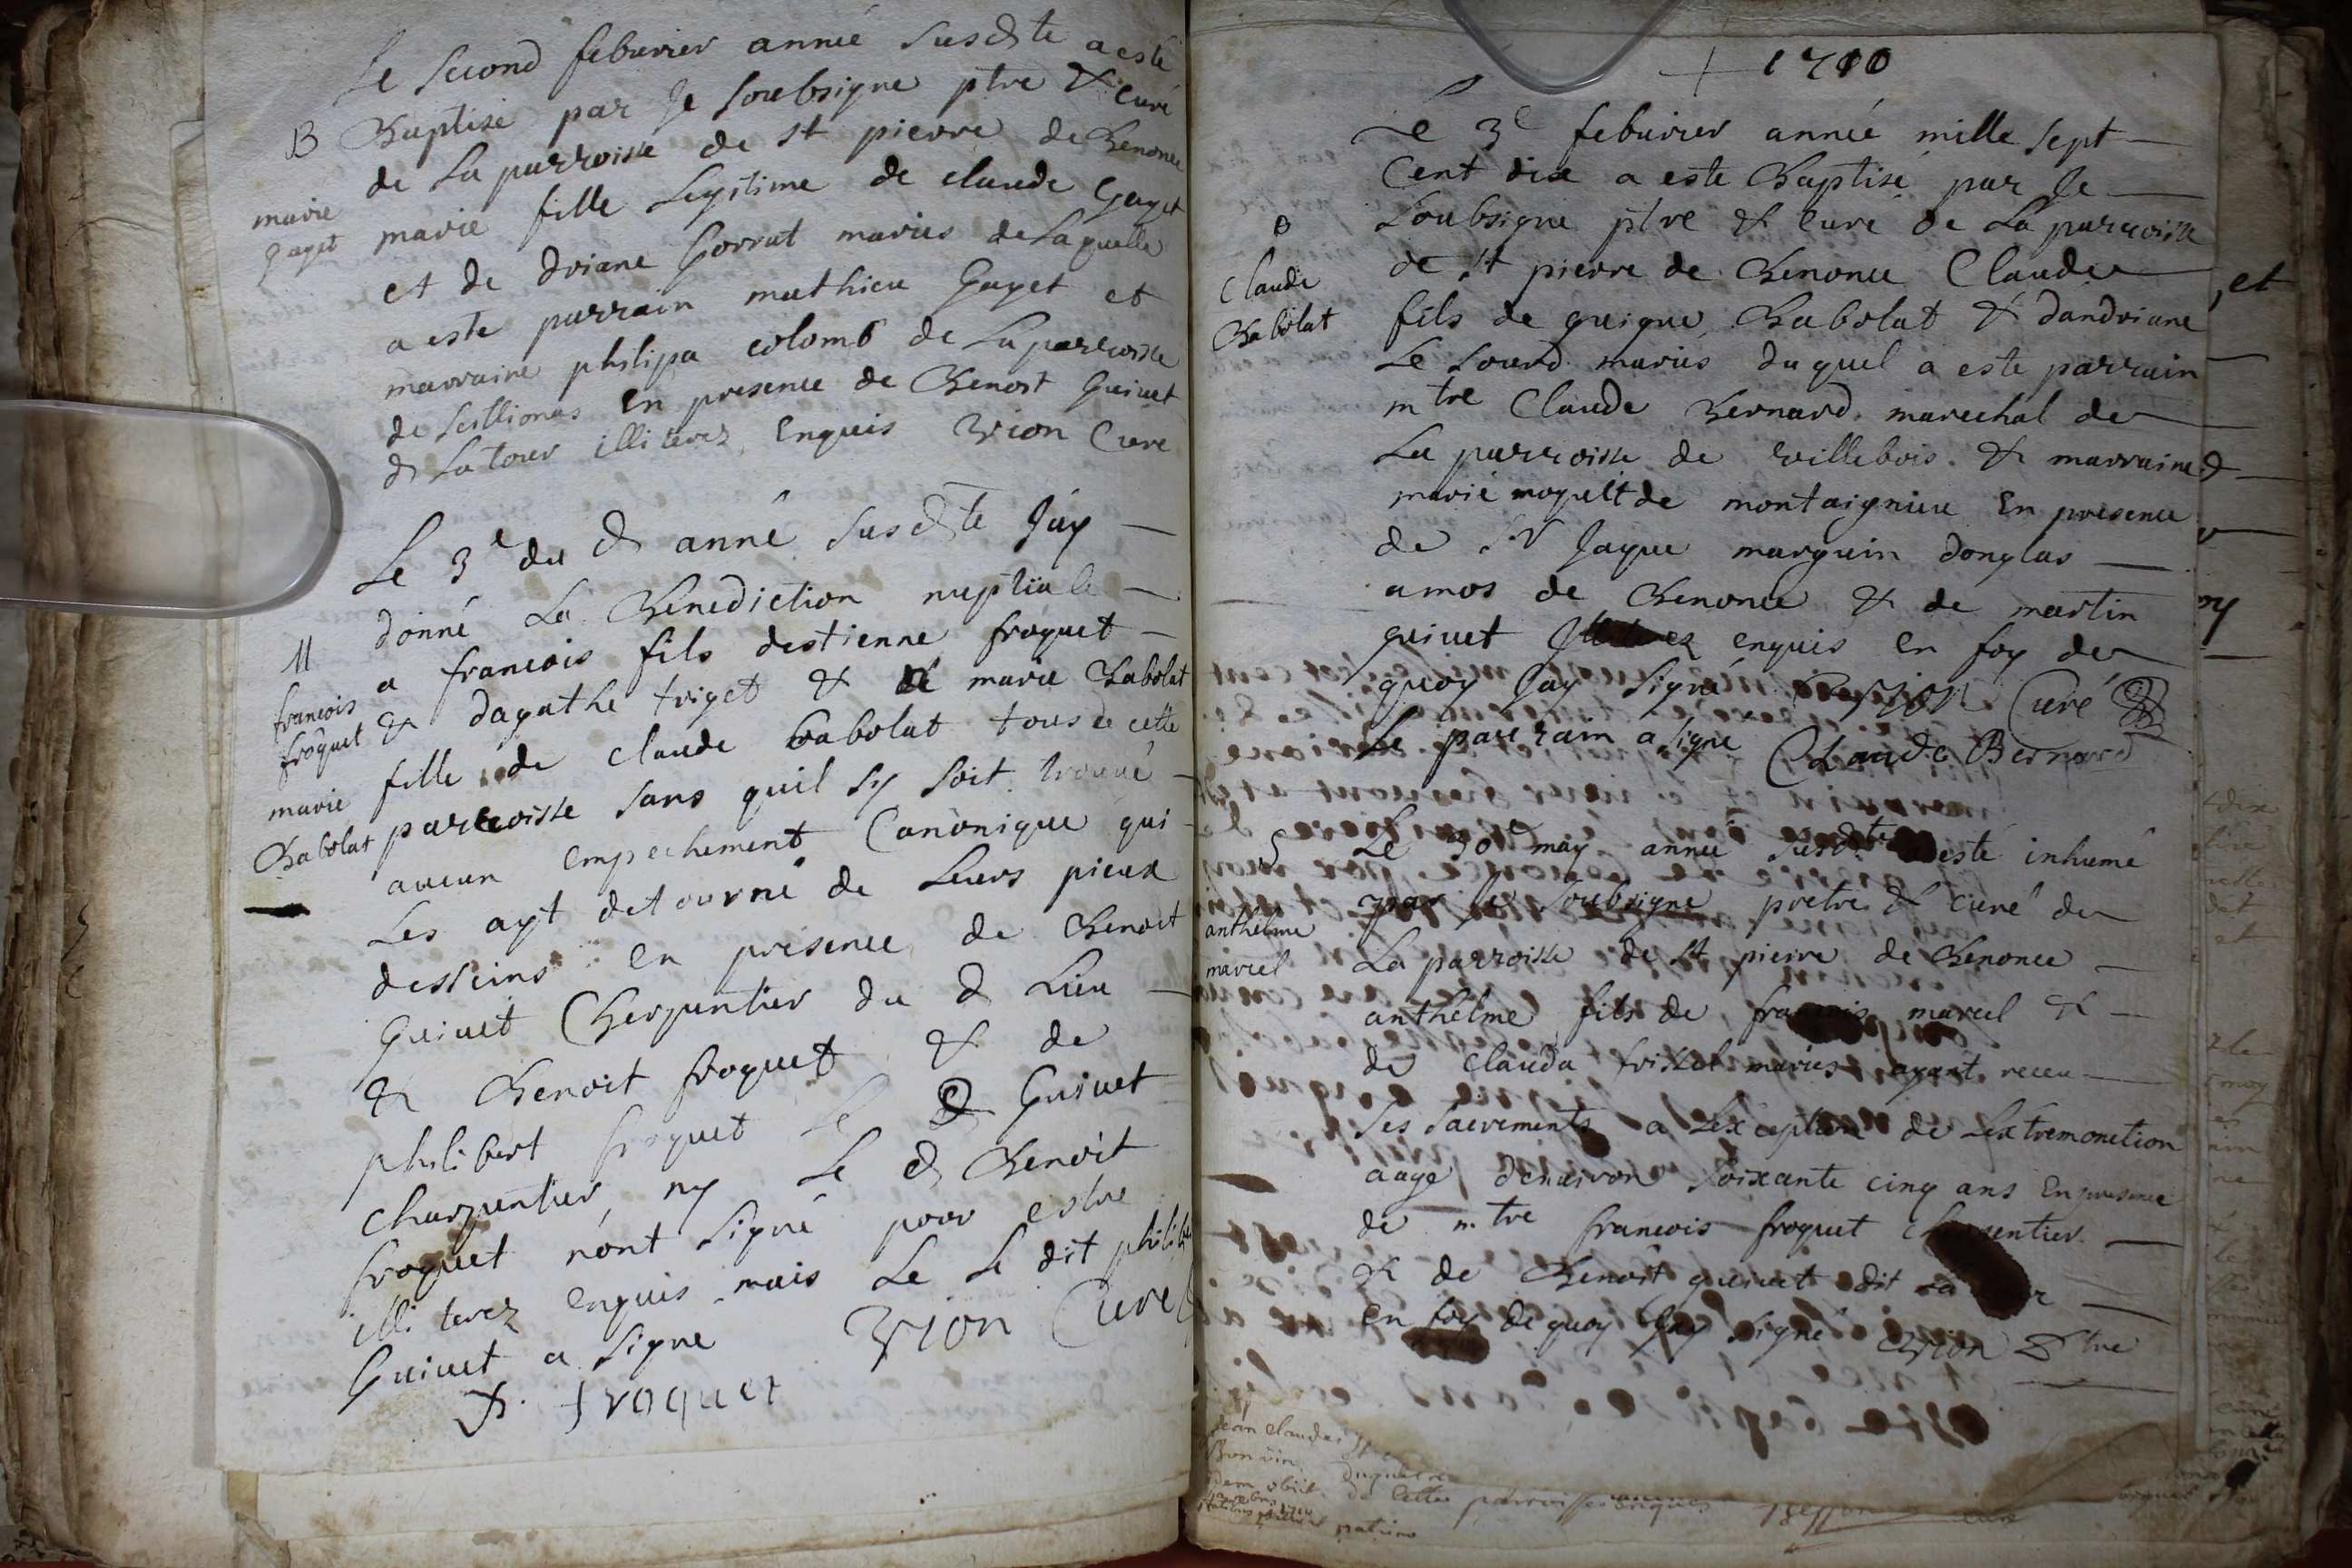 Le second feburier année susdte a esté
B Baptisé par Je soubsigne ptre & curé
de La parroisse de st pierre de Benonce
marie
gayet
marie fille Legitime de claude Gayet
et de driane Gorrat mariés de laquelle
a este parrain mathieu Gayet et
marraine philipa colomb de La parroisse
de seillionas En presence de Benoit Guinet
d Latour illiterez Enquis Brion Cure
Le 3e du d année susdte Jay
donné La Benediction nuptiale
M
francois
froquet
marie
Babolat
a francois fils destienne froquet
& dagathe triget & de marie Babolat
fille de claude Babolat tous de cette
parroisse sans quil sy soit trouué
aucun empechement Canonique qui
Les ayt detourné de Leurs pieux
desseins en présence de Benoit
Guinet Cherpantier du d Lieu
& Benoit froquet & de
philibert froquet Le d Guinet
charpantier ny Le d Benoit
froquet n'ont signé pour estre
illi terez enquis mais Le Le dit philib
Guinet a signe Brion Curé
P. froquet
1710
Le 3e feburier année mille sept
Cent dix a este Baptisé par Je
soubsigne ptre & curé de La parroisse
B
Claude
Babolat
de st pierre de Benonce Claude
fils de guigue Babolat & dandriane
Le sourd mariés duquel a este parrain
mtre Claude Bernard marechal de
La parroisse de villebois & marraine
marie moquet de montaignieu En presence
de sr Jaque marguin donglas
amos de Benonce & de martin
guinet enquis en foy de
quoy Jay signé Brion Curé
Le parrain a signe Claude Bernard
S
anthelme
marcel
Le 30e may année susdte esté inhumé
par Je soubsigne pretre & curé de
La parroisse de st pierre de Benonce
anthelme fils de francois marcel &
de clauda frissel mariés ayant receu
ses sacrements a Lexception de Lextremonction
aagé denuiron soixante cinq ans En presence
de mtre francois froquet charpentier
& de Benoit guinet dit La
en foy de quoy Jay signé Brion ptre